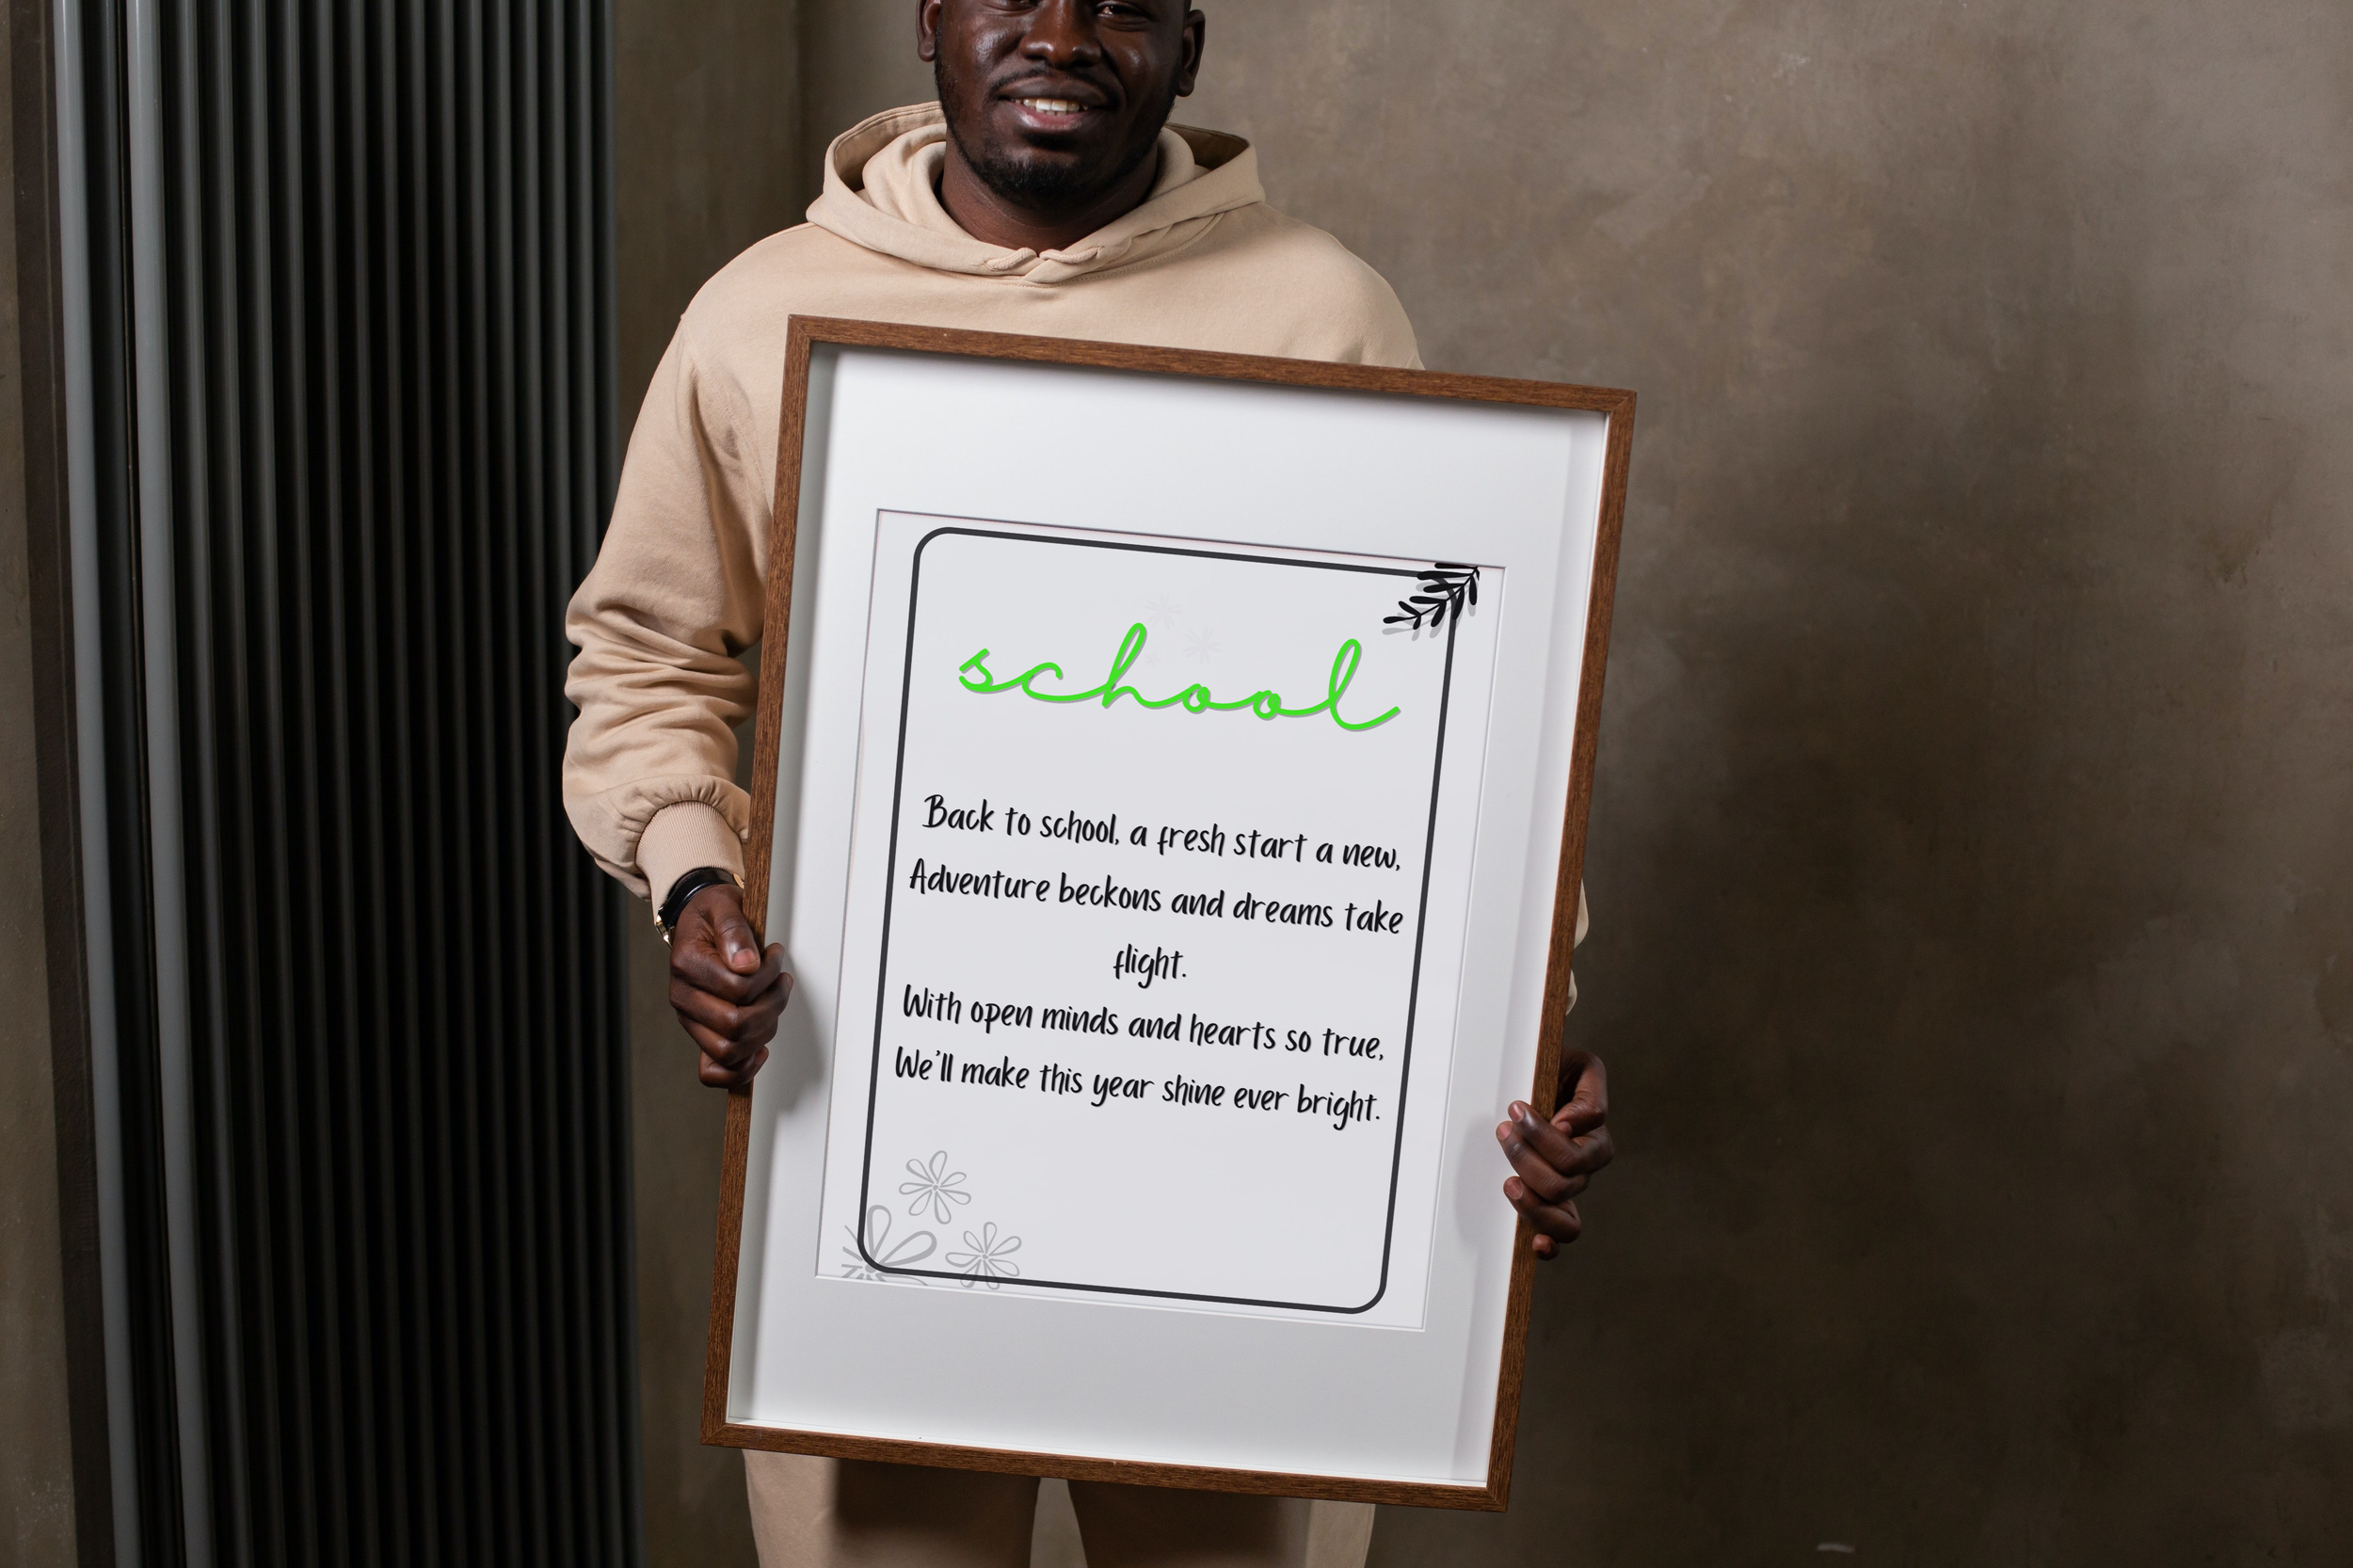 school
Back to school, a fresh start a new,
Adventure beckons and dreams take
flight.
With open minds and hearts so true,
We'll make this year shine ever bright.